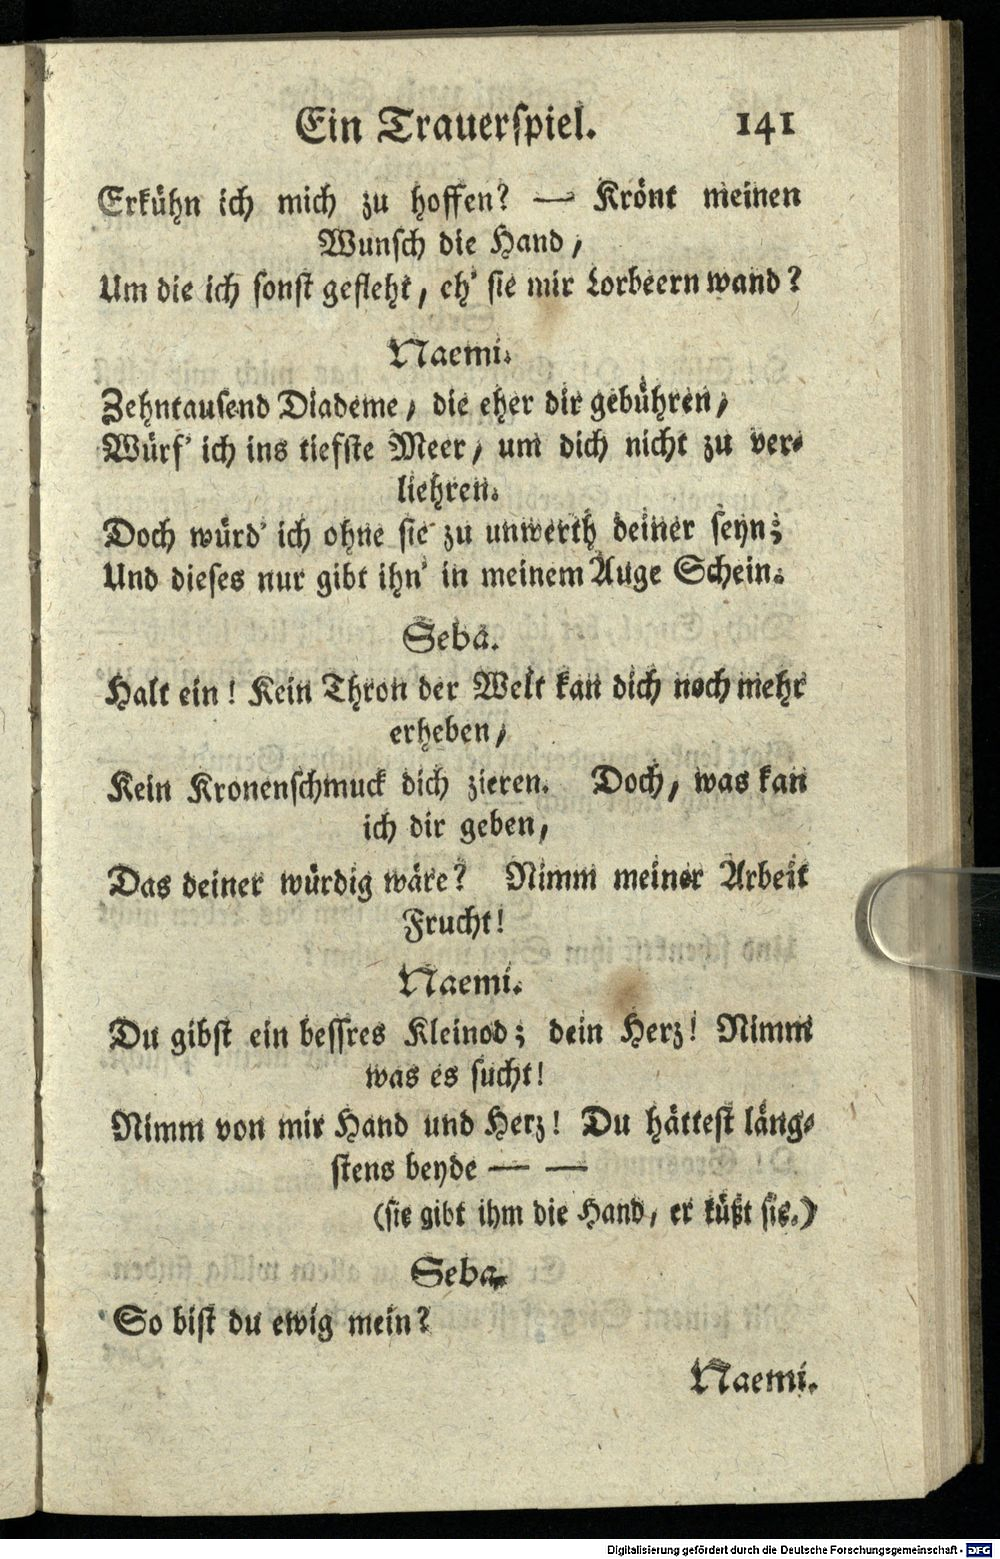 Ein Trauerspiel. 141
Erkühn ich mich zu hoffen? — Krönt meinen
Wunsch die Hand,
Um die ich sonst gefleht, eh' sie mir Lorbeern wand?
Naemi.
Zehntausend Diademe, die eher dir gebühren,
Würf' ich ins tiefste Meer, um dich nicht zu ver-
liehren.
Doch würd' ich ohne sie zu unwerth deiner seyn;
Und dieses nur gibt ihn' in meinem Auge Schein.
Seba.
Halt ein! Kein Thron der Welt kan dich noch mehr
erheben,
Kein Kronenschmuck dich zieren. Doch, was kan
ich dir geben,
Das deiner würdig wäre? Nimm meiner Arbeit
Frucht!
Naemi.
Du gibst ein bessres Kleinod; dein Herz! Nimm
was es sucht!
Nimm von mir Hand und Herz! Du hättest läng-
stens beyde — —
(sie gibt ihm die Hand, er küßt sie.)
Seba.
So bist du ewig mein?
Naemi.
Digitalisierung gefördert durch die Deutsche Forschungsgemeinschaft - DFG